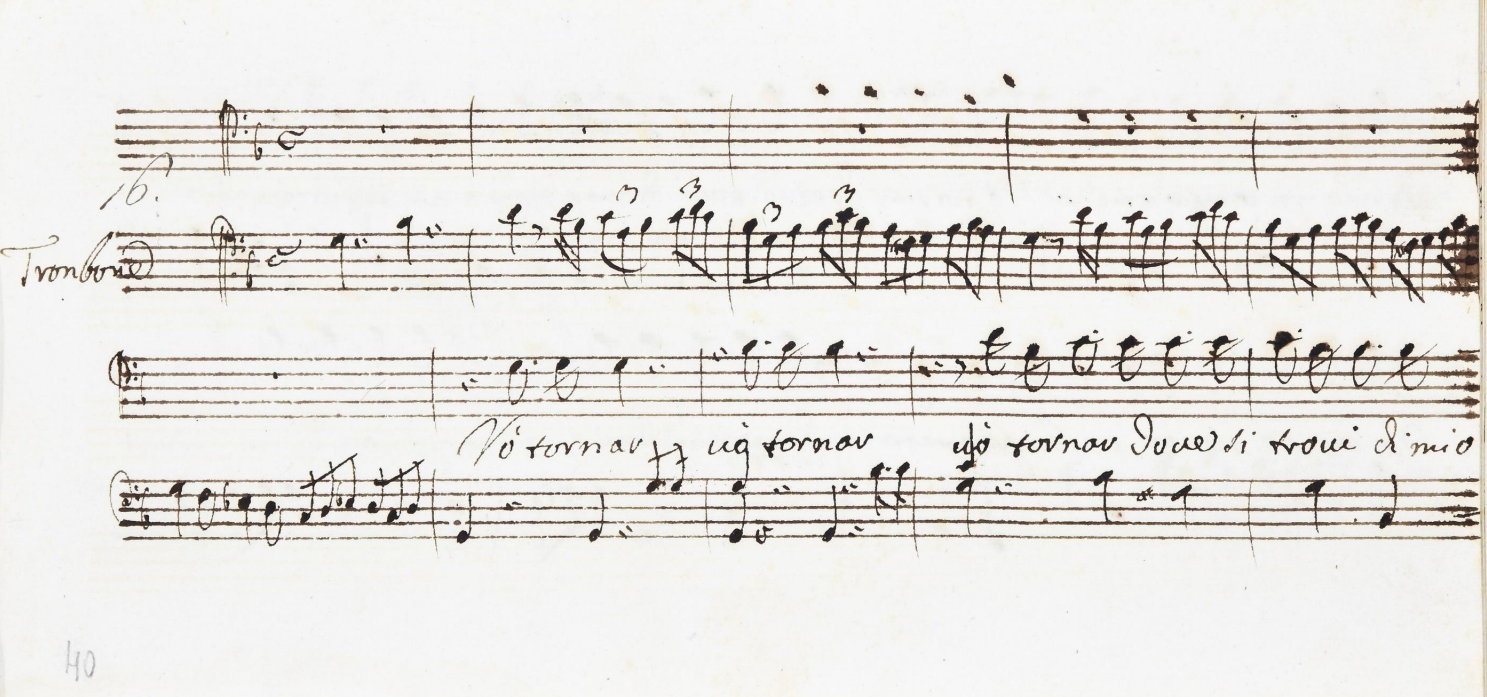 16.
Trombone
3 3
3 3
Vó tornar vó tornar vó tornar Doue si troui di mio
40